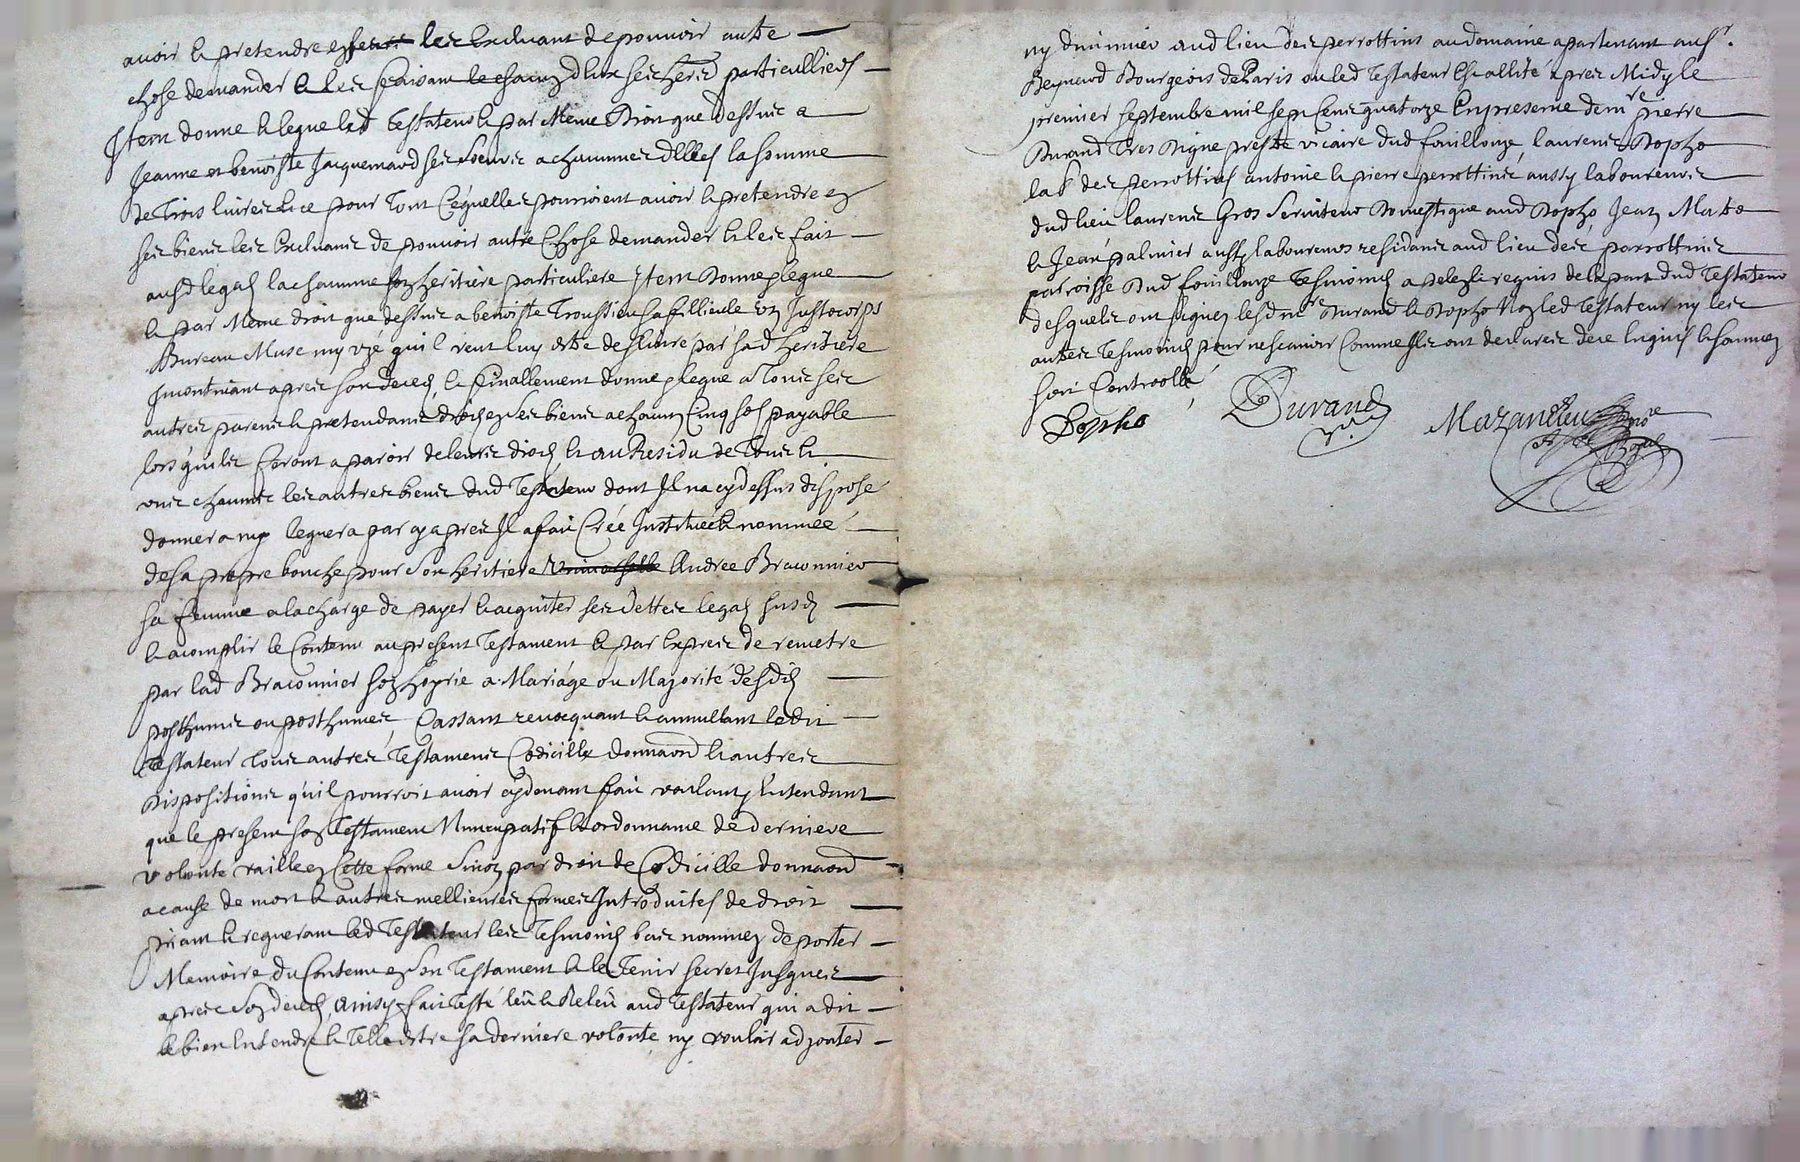 avoir et pretendre en ses biens les Excluant de pouvoir autre
chose demander et les faisant chaun d'eux ses herers particulliers
Item donne et legue led testateur et par Meme Droit que dessus a
Jeanne et benoiste Jacquemard ses soeurs a chaunne d'Elles la somme
de Trois livres et ce pour Tout ce qu'elles pourroient avoir et pretendre en
ses biens les Excluants de pouvoir autre Chose demander et les fait
ausd legats chaunne son heritiere particuliere Item Donne et legue
et par Meme droit que dessus a benoiste sa fillieule un Justocorps
Bureau Musc ny uzé qu'il veut luy estre deslivré par sad heritiere
Incontinant apres son deces, et finallement donne et legue a Tous ses
autres parens et pretendants droits en ses biens a chaun Cinq sols payable
lors qu'ils feront aparoir de leurs droits et au Residu de Tous et
uns chauns les autres biens dud Testateur dont Il n'a cy dessus disposé
donnera ny leguera par cy apres Il a fait Créé Institué et nommée
de sa propre bouche pour son heritiere Andrée Braconnier
sa femme a la charge de payer et acquiter ses dettes legats susd
et acomplir le Contenu au present Testament et par Expres de remetre
par lad Braconnier son hoyrie a Mariage ou Majorité desdits
posthumes ou posthumes, Cassant revocquant et annullant ledit
Testateur Tous autres Testamens Codicille donnaon et autres
Dispositions qu'il pourroit avoir cydevant fait voulant Entendant
que le present son Testament Nuncupatif et ordonnance de derniere
volonté vaille en Cette forme Sinon par droit de Codicille donnaon
a cause de mort et autres mellieures formes Introduites de droit
priant et requerant led Testateur les Tesmoins bas nommez de porter
Memoire du Contenu en son Testament et le Tenir secret Jusques
apres son deces, ainsy fait Testé leu et Releu aud Testateur qui a dit
le bien Entendre et Telle estre sa derniere volonté ny vouloir adjouter
ny diminuer aud lieu des perrottins au domaine apartenant au sr.
Reynaud Bourgeois de Paris ou led Testateur Est allité apres Midy le
premier septembre mil sept Cens quatorze En presence de mre pierre
Durand Tres Digne prestre vicaire dud fouillouze, laurens Dopho
labr des perrottins antoine et pierre perrottins aussy laboureurs
dud lieu laurens Gros Serviteur Domestique aud Dopho, Jean
et Jean palmier aussy laboureurs residants aud lieu des perrottins
parroisse Dud fouillouze Tesmoins apelez et requis de la part dud Testateur
desquels ont signez lesd mre Durand et Dopho Non led Testateur ny les
autres Tesmoins pour ne scavoir Comme Ils ont declarez de ce Enquis et sommez
soit Controollé
Dopho Durand vic. Mazandieu